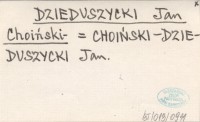 DZIEDUSZYCKI Jan
Choiński- = CHOIŃSKI-DZIE-
DUSZYCKI Jan.